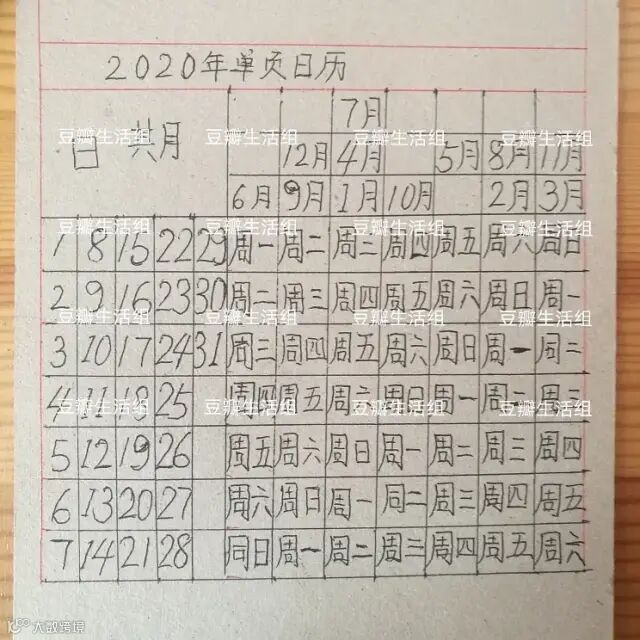 2020年单页日历
7月
日 共月 12月 4月 5月 8月 11月
6月 9月 1月 10月 2月 3月
1 8 15 22 29 周一 周二 周三 周四 周五 周六 周日
2 9 16 23 30 周二 周三 周四 周五 周六 周日 周一
3 10 17 24 31 周三 周四 周五 周六 周日 周一 周二
4 11 18 25 周四 周五 周六 周日 周一 周二 周三
5 12 19 26 周五 周六 周日 周一 周二 周三 周四
6 13 20 27 周六 周日 周一 周二 周三 周四 周五
7 14 21 28 周日 周一 周二 周三 周四 周五 周六
豆瓣生活组 豆瓣生活组 豆瓣生活组 豆瓣生活组
豆瓣生活组 豆瓣生活组 豆瓣生活组 豆瓣生活组
豆瓣生活组 豆瓣生活组 豆瓣生活组 豆瓣生活组
豆瓣生活组 豆瓣生活组 豆瓣生活组 豆瓣生活组
大数跨境